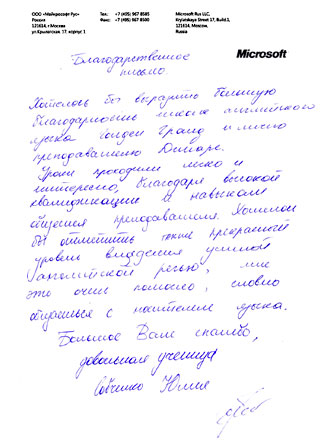 ООО «Майкрософт Рус» Тел.: +7 (495) 967 8585 Microsoft Rus LLC,
Россия Факс: +7 (495) 967 8500 Krylatskaya Street 17, Build.1,
121614, г.Москва 121614, Moscow,
ул.Крылатская 17, корпус 1 Russia
Microsoft
Благодарственное
письмо.
Хотелось бы выразить большую
благодарность школе английского
языка и лично
преподавателю
Уроки проходили легко и
интересно, благодаря высокой
квалификации и навыкам
общения преподавателя. Хотелось
бы отметить также прекрасный
уровень владения устной
английской речью, мне
это очень помогло, словно
общаешься с носителем языка.
Большое Вам спасибо,
довольная ученица
Юлия